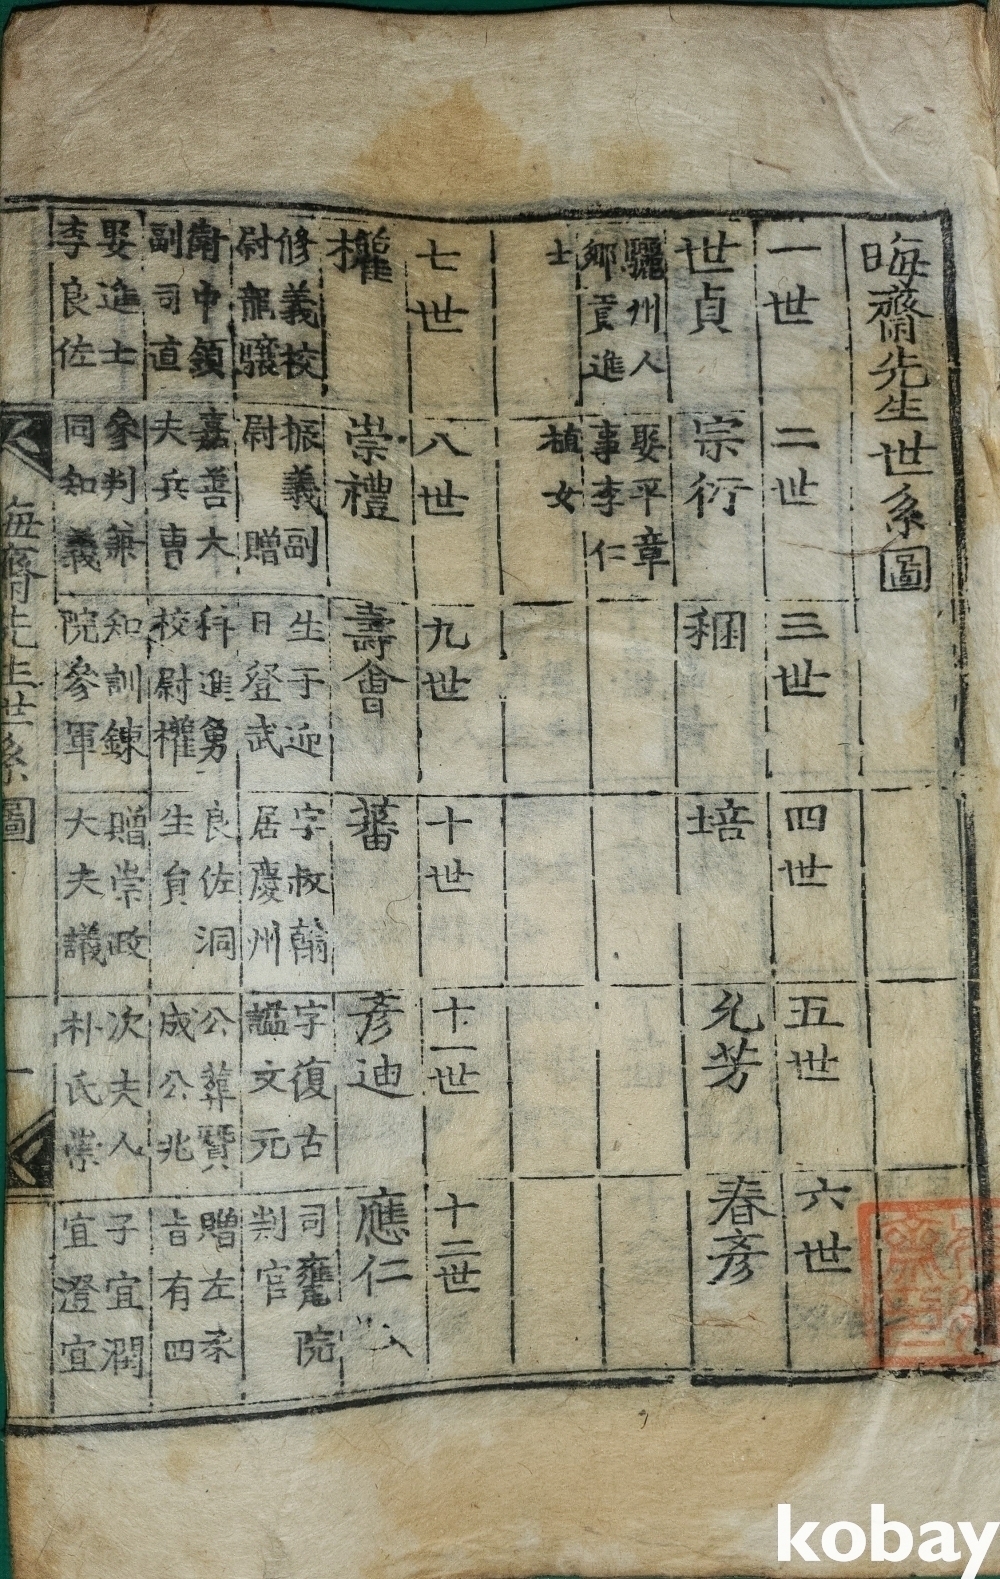 晦齋先生世系圖
一世
二世
三世
四世
五世
六世
世貞
宗衍
稇
培
允芳
春彥
驪州人
鄉貢進
士
娶平章
事李仁
植女
七世
八世
九世
十世
十一世
十二世
權
崇禮
壽會
蕃
彥迪
應仁
修義校
尉龍驤
衛中領
副司直
娶進士
李良佐
振義副
尉 贈
嘉善大
夫兵曹
參判兼
同知義
生于迎
日登武
科進勇
校尉權
知訓鍊
院參軍
字叔翰
居慶州
良佐洞
生員
贈崇政
大夫議
字復古
諡文元
公葬贊
成公兆
次夫人
朴氏崇
司饔院
判官
贈左承
旨有四
子宜潤
宜澄宜
晦齋先生世系圖
一
kobay